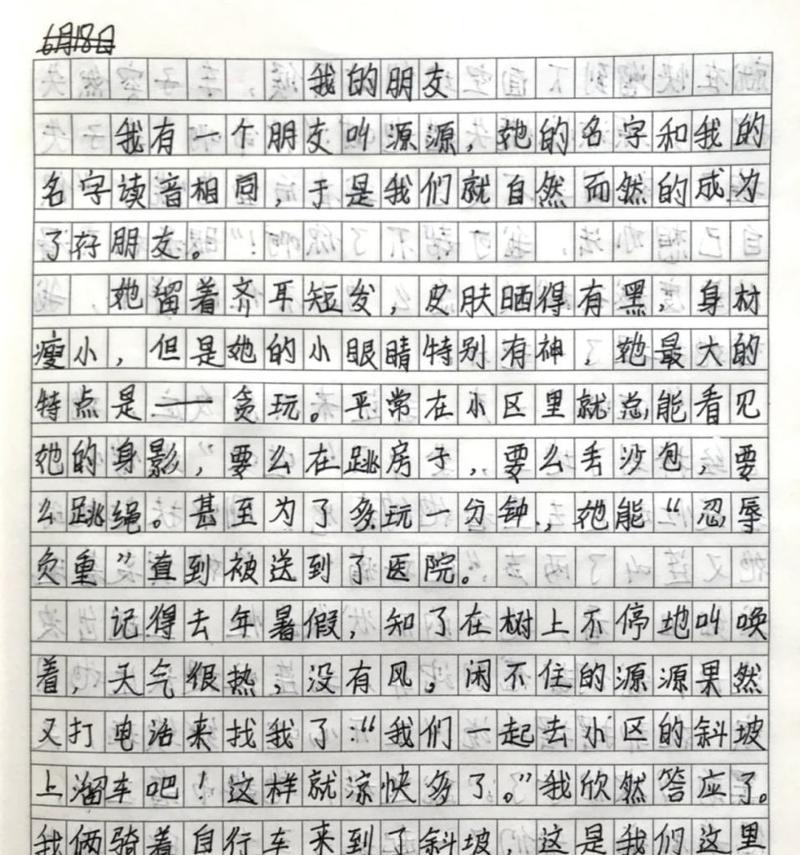 6月18日
我的朋友
我有一个朋友叫源源，她的名字和我的
名字读音相同，于是我们就自然而然的成为
了好朋友。
她留着齐耳短发，皮肤晒得有黑，身材
瘦小，但是她的小眼睛特别有神，她最大的
特点是——贪玩。平常在小区里就总能看见
她的身影，要么在跳房子，要么丢沙包，要
么跳绳。甚至为了多玩一分钟，她能“忍辱
负重”直到被送到了医院。
记得去年暑假，知了在树上不停地叫唤
着，天气很热，没有风，闲不住的源源果然
又打电话来找我了：“我们一起去小区的斜坡
上溜车吧！这样就凉快多了。”我欣然答应了。
我俩骑着自行车来到了斜坡，这是我们这里